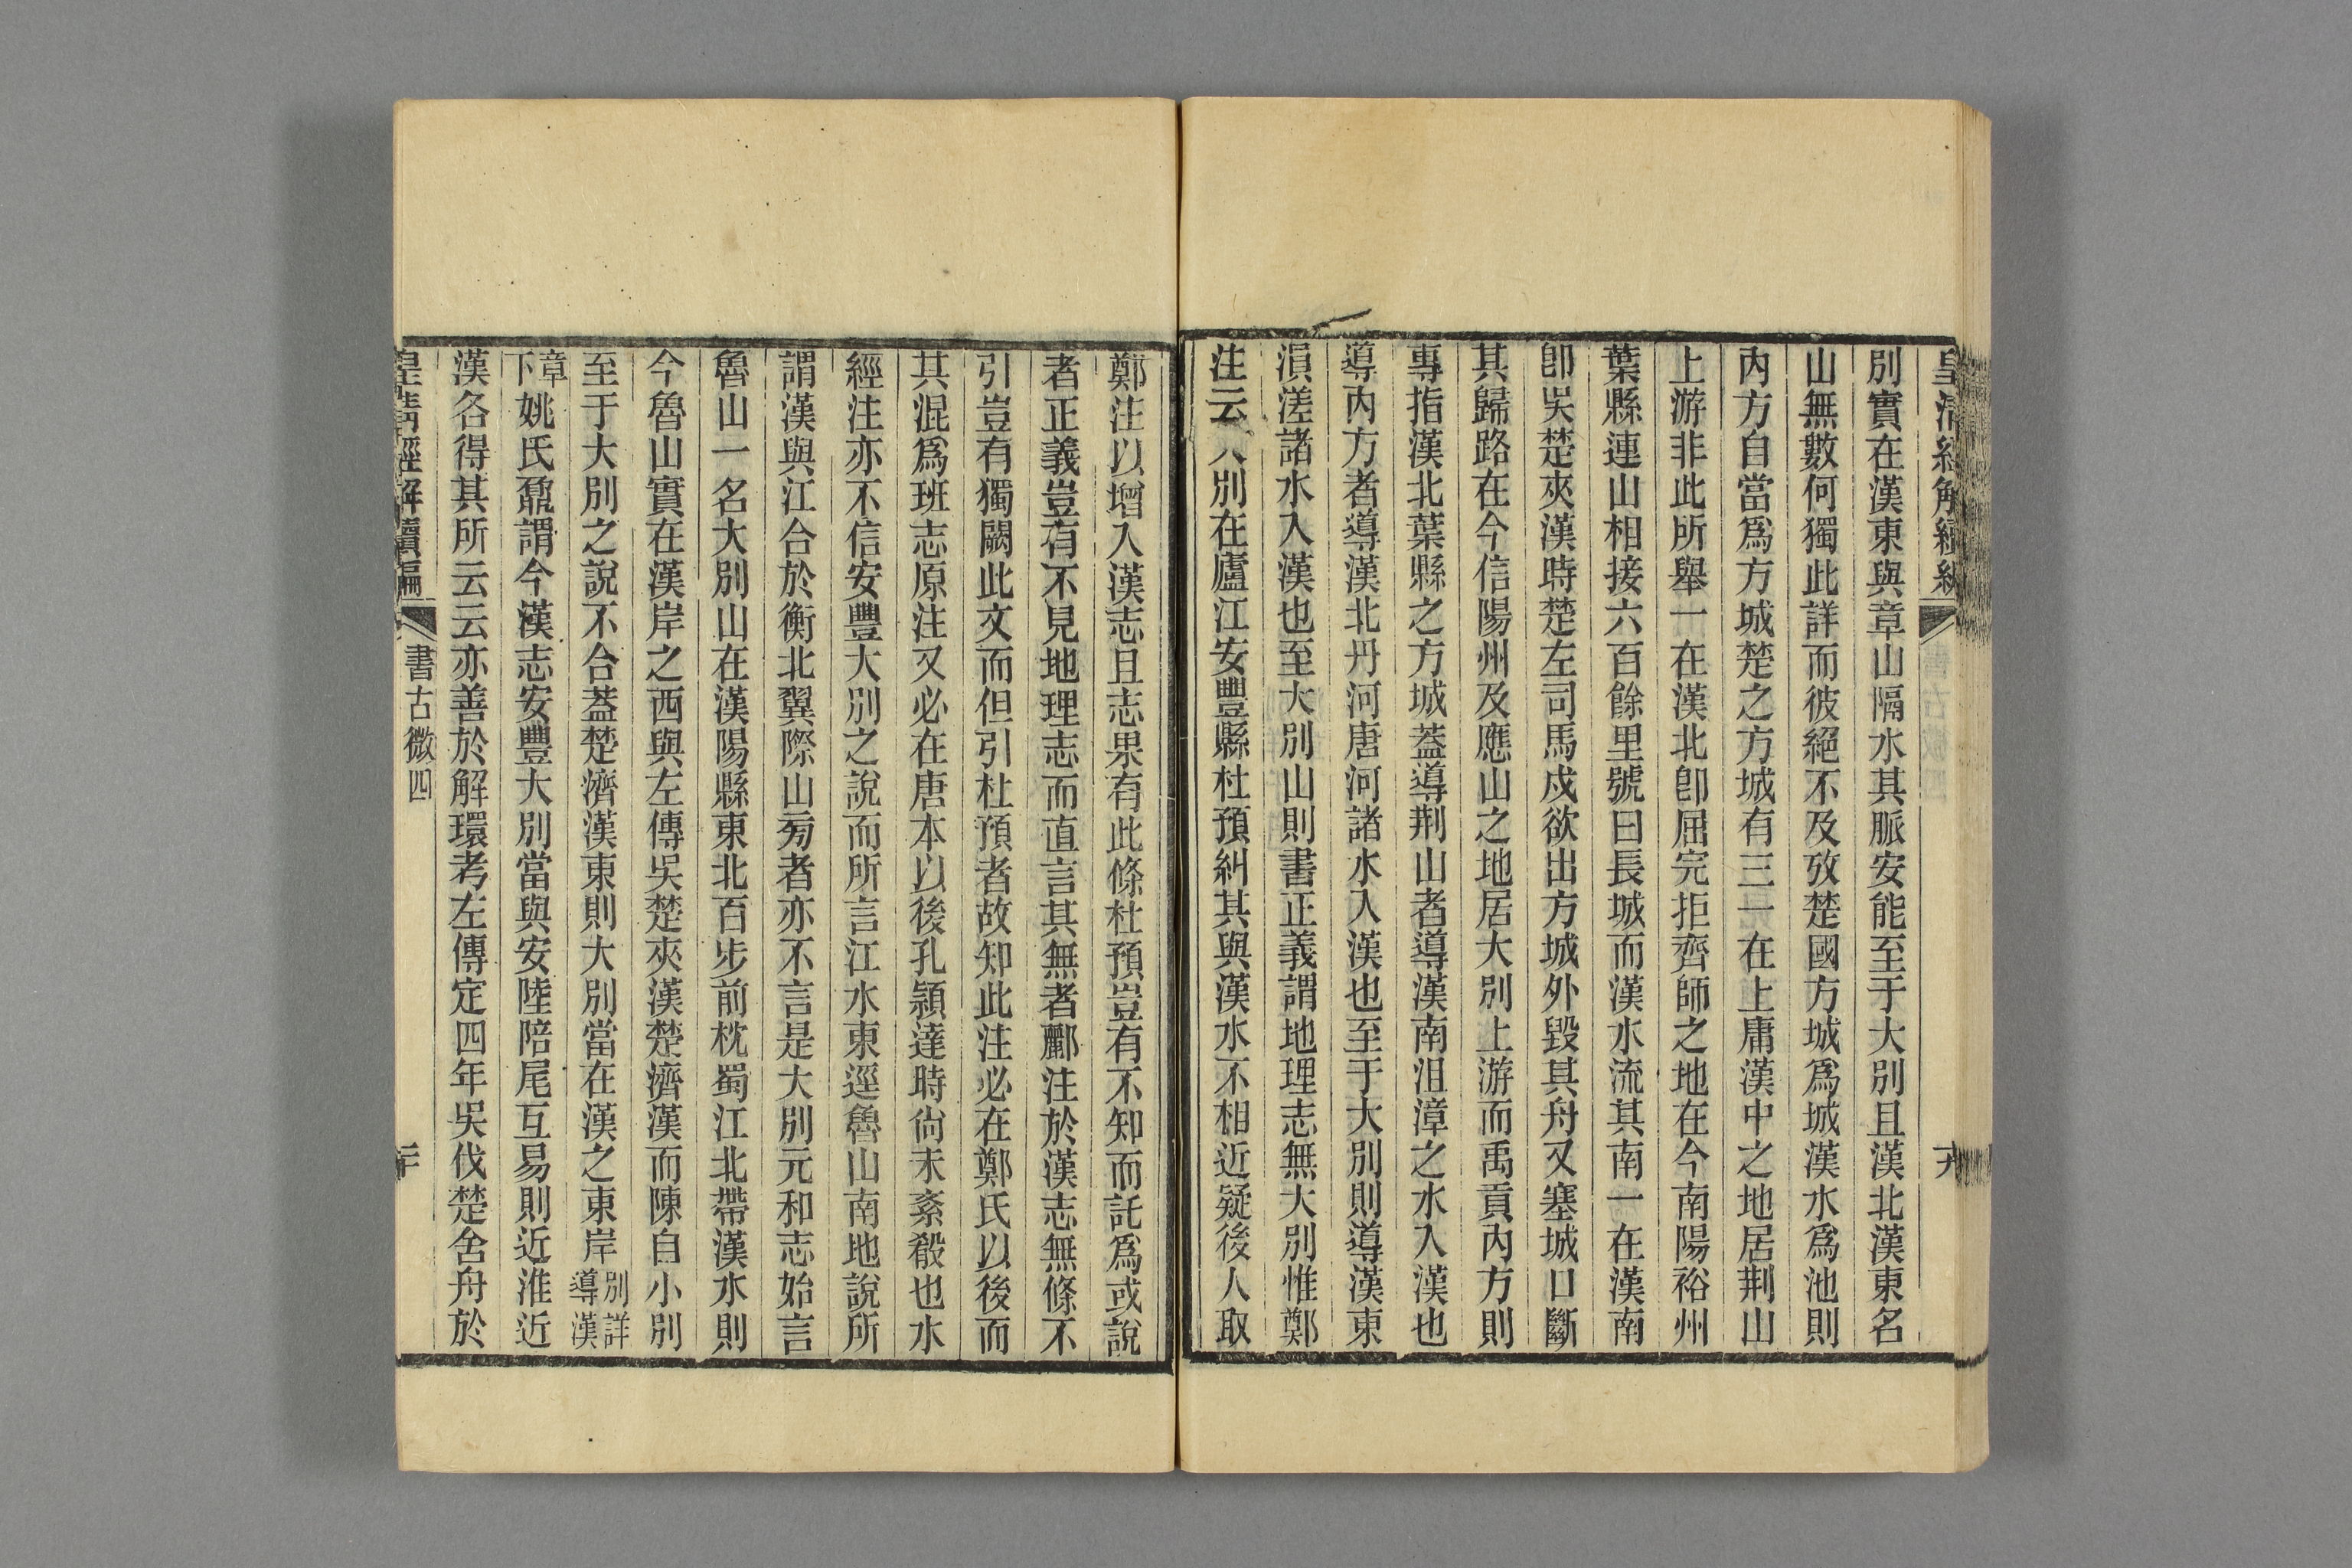 皇清經解續編
十九
別實在漢東與章山隔水其脈安能至于大別且漢北漢東名
山無數何獨此詳而彼絕不及攷楚國方城爲城漢水爲池則
內方自當爲方城楚之方城有三一在上庸漢中之地居荆山
上游非此所舉一在漢北卽屈完拒齊師之地在今南陽裕州
葉縣連山相接六百餘里號曰長城而漢水流其南一在漢南
卽吳楚夾漢時楚左司馬戍欲出方城外毀其舟又塞城口斷
其歸路在今信陽州及應山之地居大別上游而禹貢內方則
專指漢北葉縣之方城葢導荆山者導漢南沮漳之水入漢也
導內方者導漢北丹河唐河諸水入漢也至于大別則導漢東
溳溠諸水入漢也至大別山則書正義謂地理志無大別惟鄭
注云大別在廬江安豐縣杜預糾其與漢水不相近疑後人取
鄭注以增入漢志且志果有此條杜預豈有不知而託爲或說
者正義豈有不見地理志而直言其無者酈注於漢志無條不
引豈有獨闕此文而但引杜預者故知此注必在鄭氏以後而
其混爲班志原注又必在唐本以後孔穎達時尙未紊殽也水
經注亦不信安豐大別之說而所言江水東逕魯山南地說所
謂漢與江合於衡北翼際山㫄者亦不言是大別元和志始言
魯山一名大別山在漢陽縣東北百步前枕蜀江北帶漢水則
今魯山實在漢岸之西與左傳吳楚夾漢楚濟漢而陳自小別
至于大別之說不合葢楚濟漢東則大別當在漢之東岸別詳導漢
章下姚氏鼐謂今漢志安豐大別當與安陸陪尾互易則近淮近
漢各得其所云云亦善於解環考左傳定四年吳伐楚舍舟於
皇清經解續編
書古微四
二十